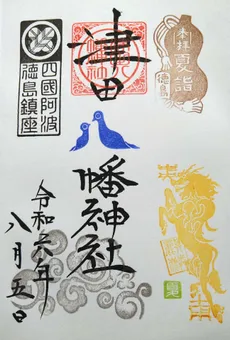 奉拝
夏詣
徳島
津田
幡神社
四國阿波
徳島鎮座
令和六年
八月五日